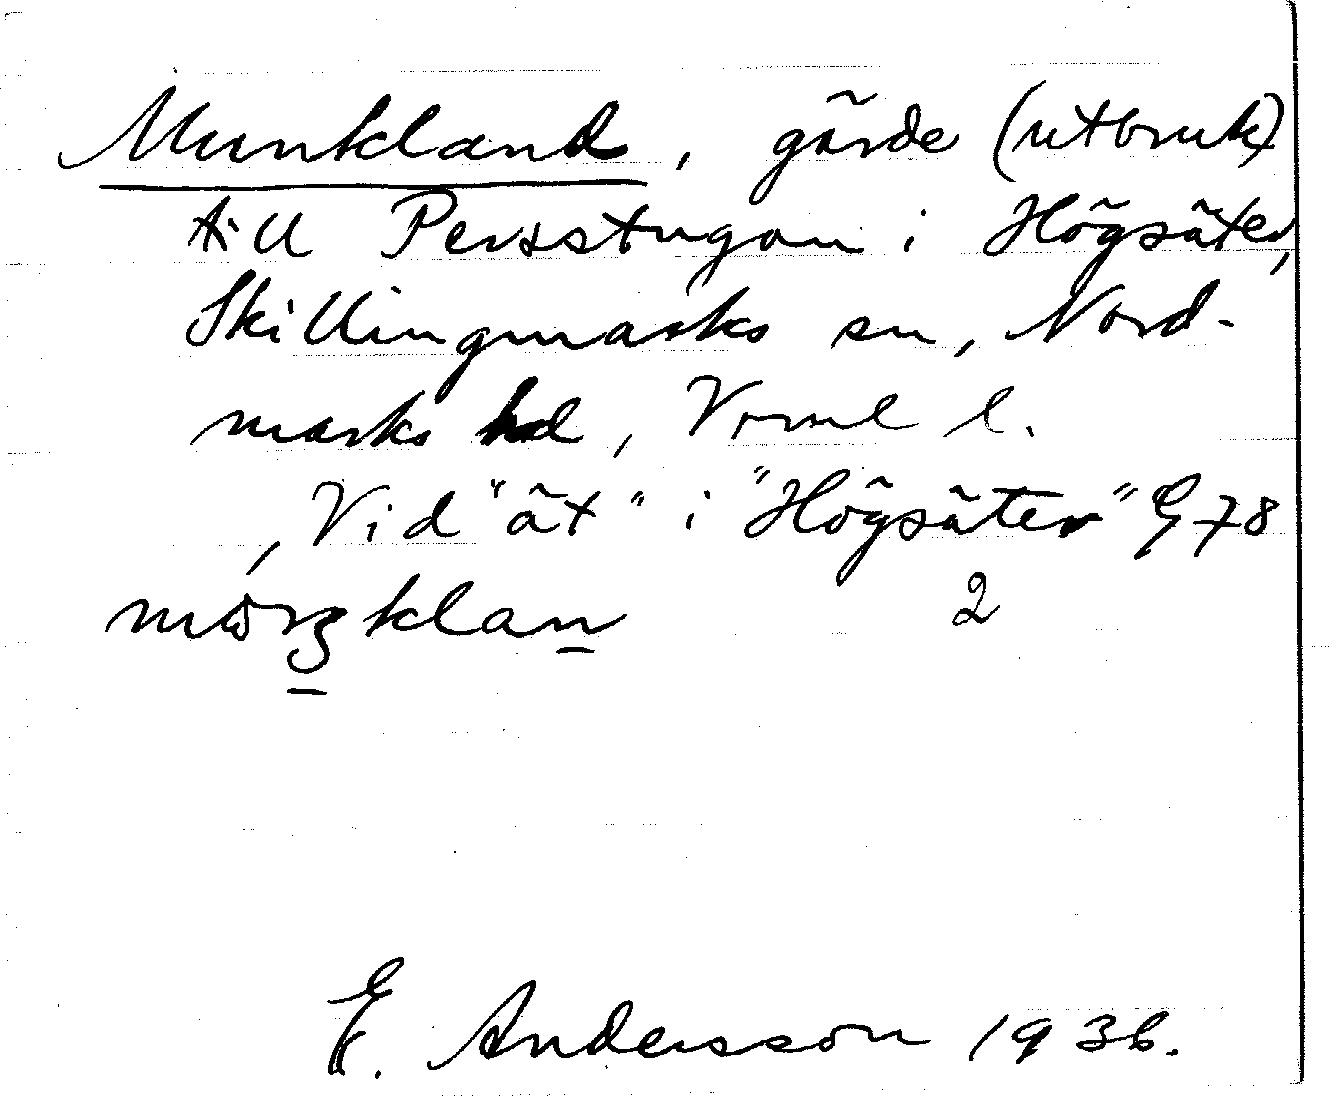 Munkland, gärde (utbruk)
till Persstugan i Högsäter,
Skillingmarks sn, Nord-
marks hd, Vrml l.
Vid "ät" i "Högsäter" G 78
2
E. Andersson 1936.